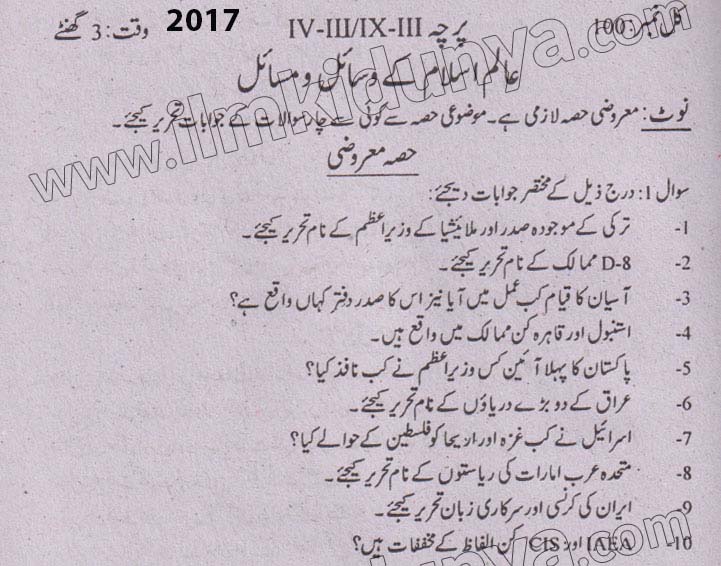 کل نمبر: 100 پرچہ IV-III/IX-III 2017 وقت: 3 گھنٹے
عالم اسلام کے وسائل و مسائل
نوٹ: معروضی حصہ لازمی ہے۔ موضوعی حصہ سے کوئی سے چار سوالات کے جوابات تحریر کیجئے۔
حصہ معروضی
سوال 1: درج ذیل کے مختصر جوابات دیجئے:
1- ترکی کے موجودہ صدر اور ملائیشیا کے وزیراعظم کے نام تحریر کیجئے۔
2- D-8 ممالک کے نام تحریر کیجئے۔
3- آسیان کا قیام کب عمل میں آیا نیز اس کا صدر دفتر کہاں واقع ہے؟
4- استنبول اور قاہرہ کن ممالک میں واقع ہیں۔
5- پاکستان کا پہلا آئین کس وزیراعظم نے کب نافذ کیا؟
6- عراق کے دو بڑے دریاؤں کے نام تحریر کیجئے۔
7- اسرائیل نے کب غزہ اور اریحا کو فلسطین کے حوالے کیا؟
8- متحدہ عرب امارات کی ریاستوں کے نام تحریر کیجئے۔
9- ایران کی کرنسی اور سرکاری زبان تحریر کیجئے۔
10- IAEA اور CIS کن الفاظ کے مخففات ہیں؟
www.ilmkidunya.com
www.ilmkidunya.com